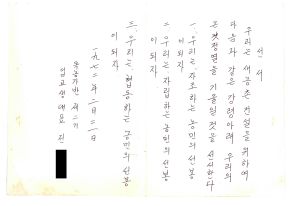 선서
우리는 새농촌 건설을 위하여
다음과 같은 강령아래 우리의
온갖 정열을 기울일것을 선서한다
一. 우리는 자조하는 농민의 선봉
이 되자
二. 우리는 자립하는 농민의 선봉
이 되자
三. 우리는 협동하는 농민의 선봉
이 되자
一九七二年 二月 二一日
제二기
입교생 대표 진